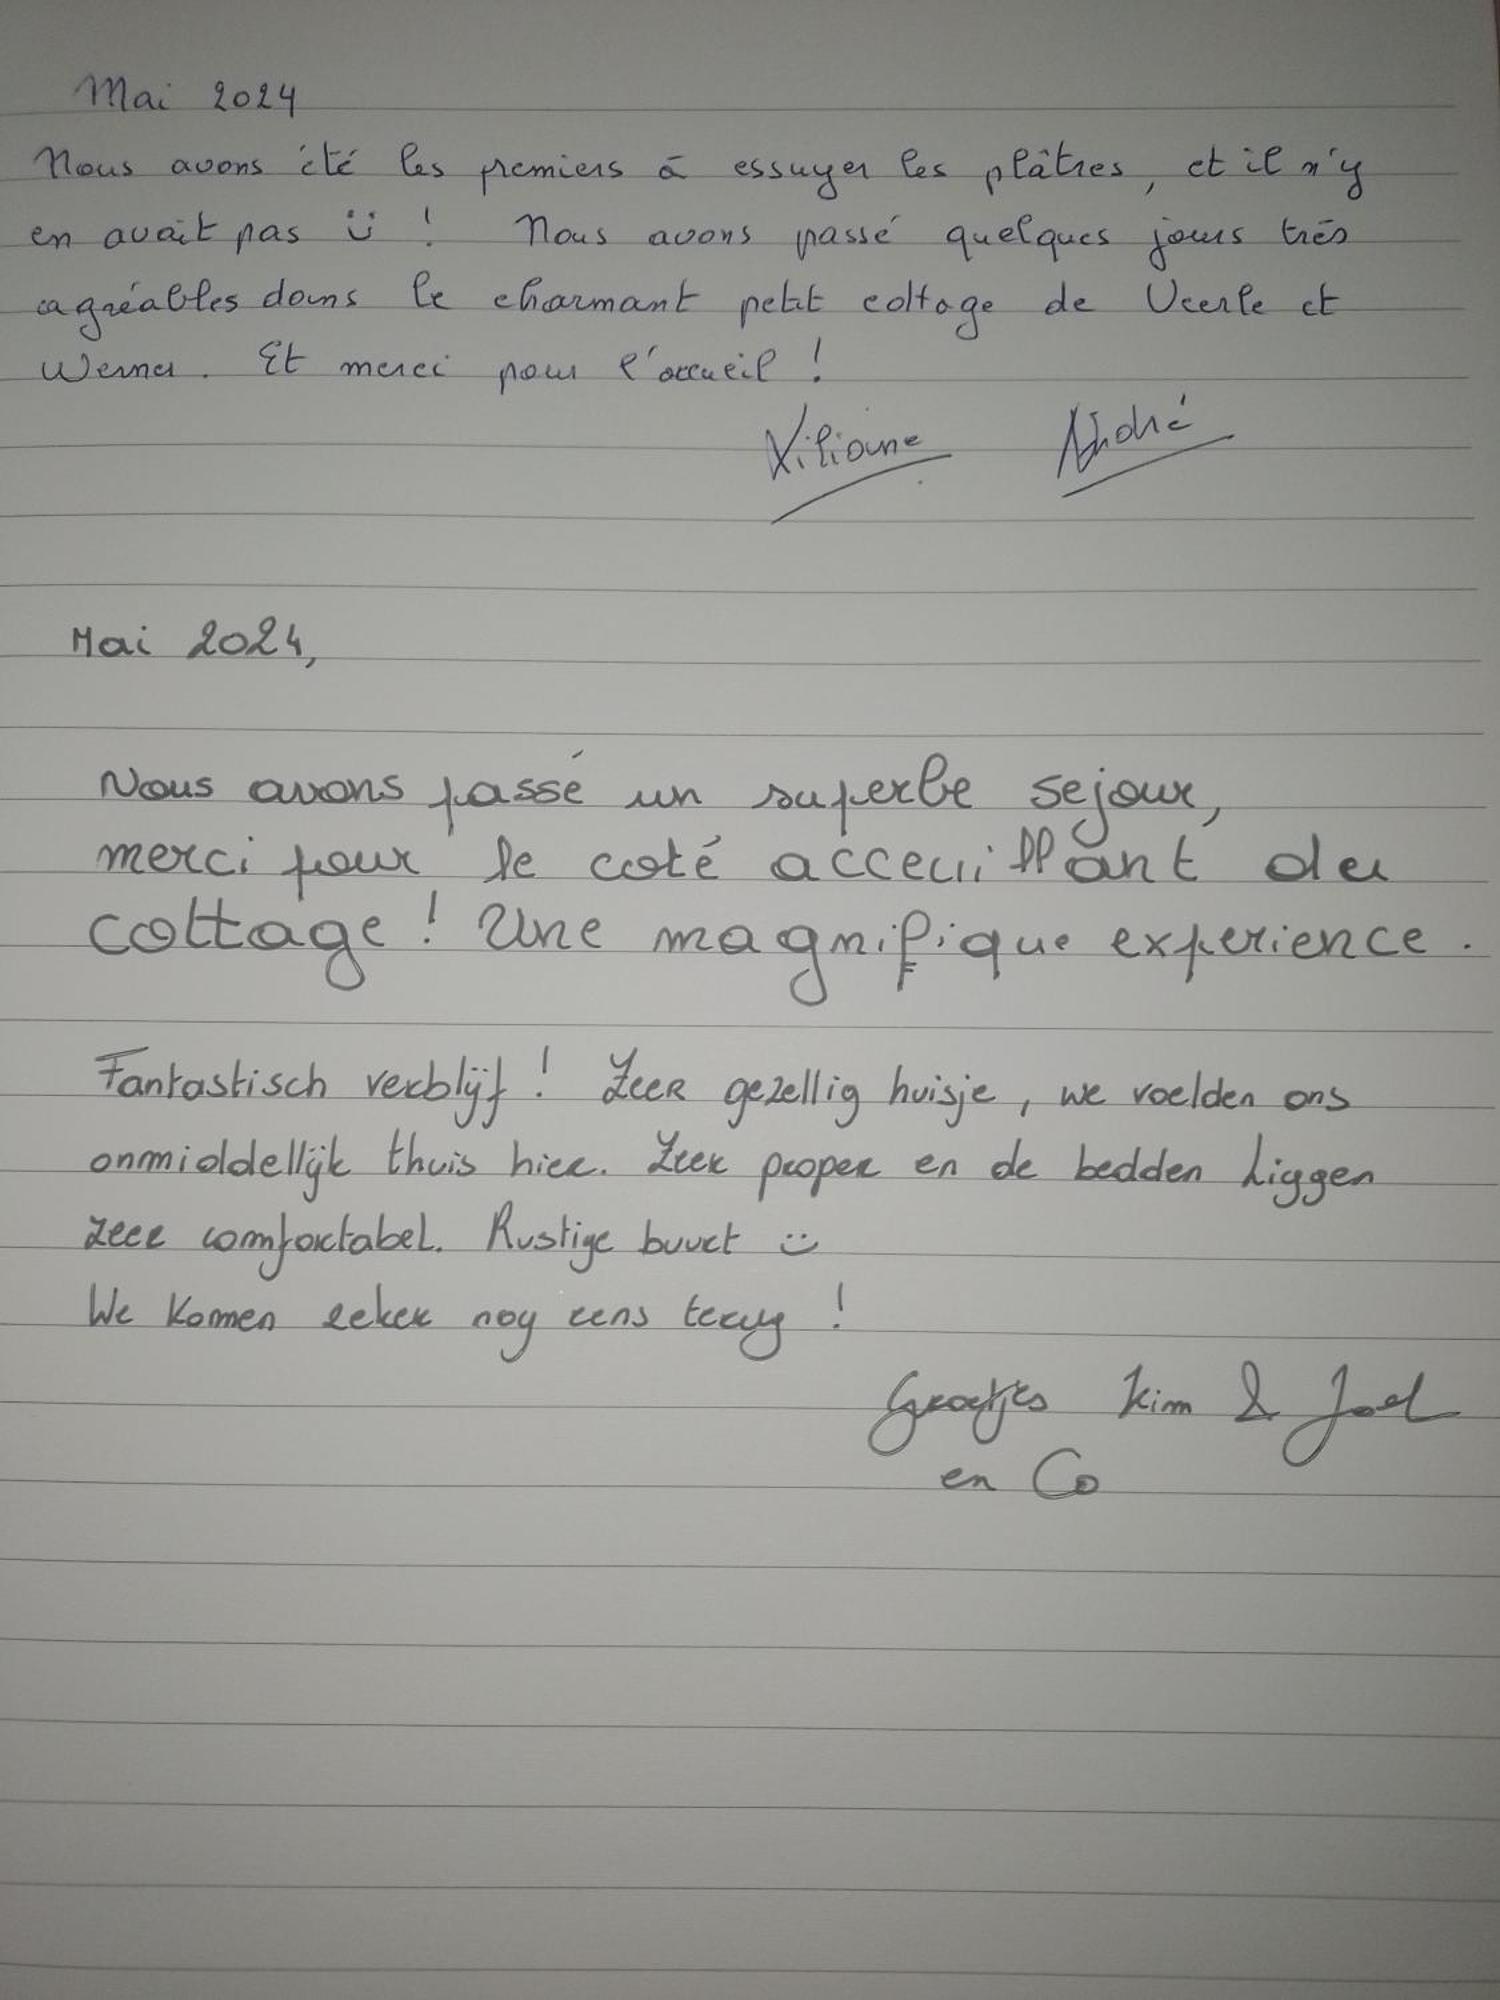 Mai 2024
Nous avons été les premiers à essuyer les plâtres, et il n'y
en avait pas ü !  Nous avons passé quelques jours très
agréables dans le charmant petit cottage de Veerle et
Werner. Et merci pour l'accueil !
Liliane André
Mai 2024,
Nous avons passé un superbe sejour,
merci pour le coté acceuillant du
cottage ! Une magnifique experience.
Fantastisch verblijf ! Zeer gezellig huisje, we voelden ons
onmiddellijk thuis hier. Zeer proper en de bedden liggen
zeer comfortabel. Rustige buurt ü
We komen zeker nog eens terug !
Groetjes Kim & Joel
en Co